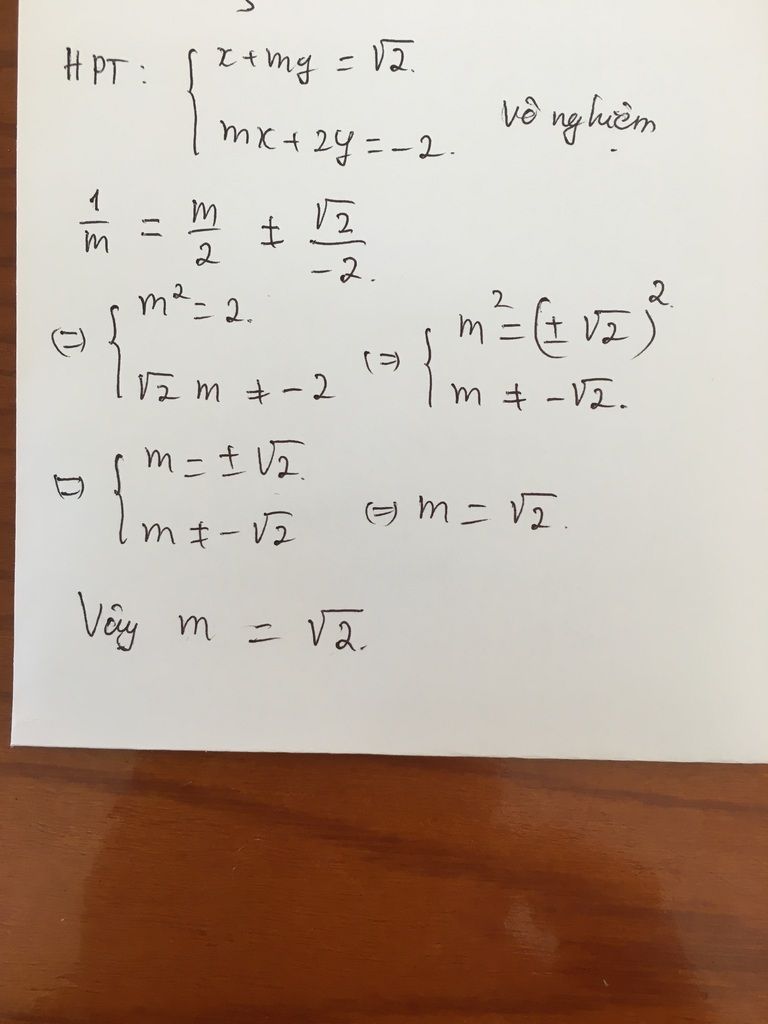 HPT: { x + my = √2.
mx + 2y = -2. vô nghiệm
1/m = m/2 ≠ √2/-2.
(=) { m² = 2. (=) { m² = (± √2)².
√2 m ≠ -2 m ≠ -√2.
(=) { m = ± √2.
m ≠ -√2 (=) m = √2.
Vây m = √2.